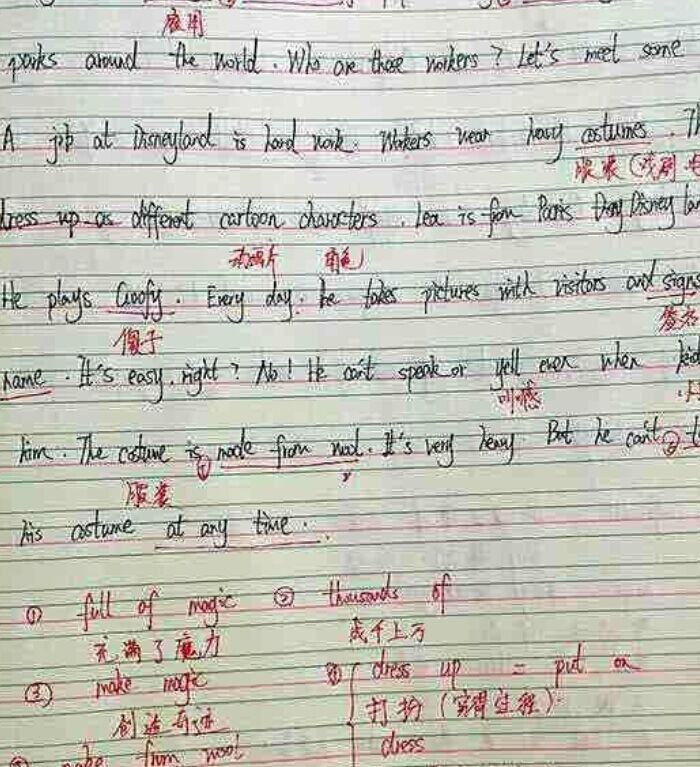 应用
parks around the world. Who are these workers? Let's meet some
A job at Disneyland is hard work. Workers wear heavy costumes. Th
服装(戏剧
dress up as different cartoon characters. Lea is from Paris Disney lan
动画片 角色
He plays Goofy. Every day, he takes pictures with visitors and signs
傻子 签名
name. It's easy, right? No! He can't speak or yell even when kid
叫喊
him. The costume is made from wool. It's very heavy. But he can't
服装
his costume at any time.
① full of magic ② thousands of
充满了魔力 成千上万
③ make magic ④ dress up = put on
创造奇迹 打扮(穿得过程)
make from wool dress